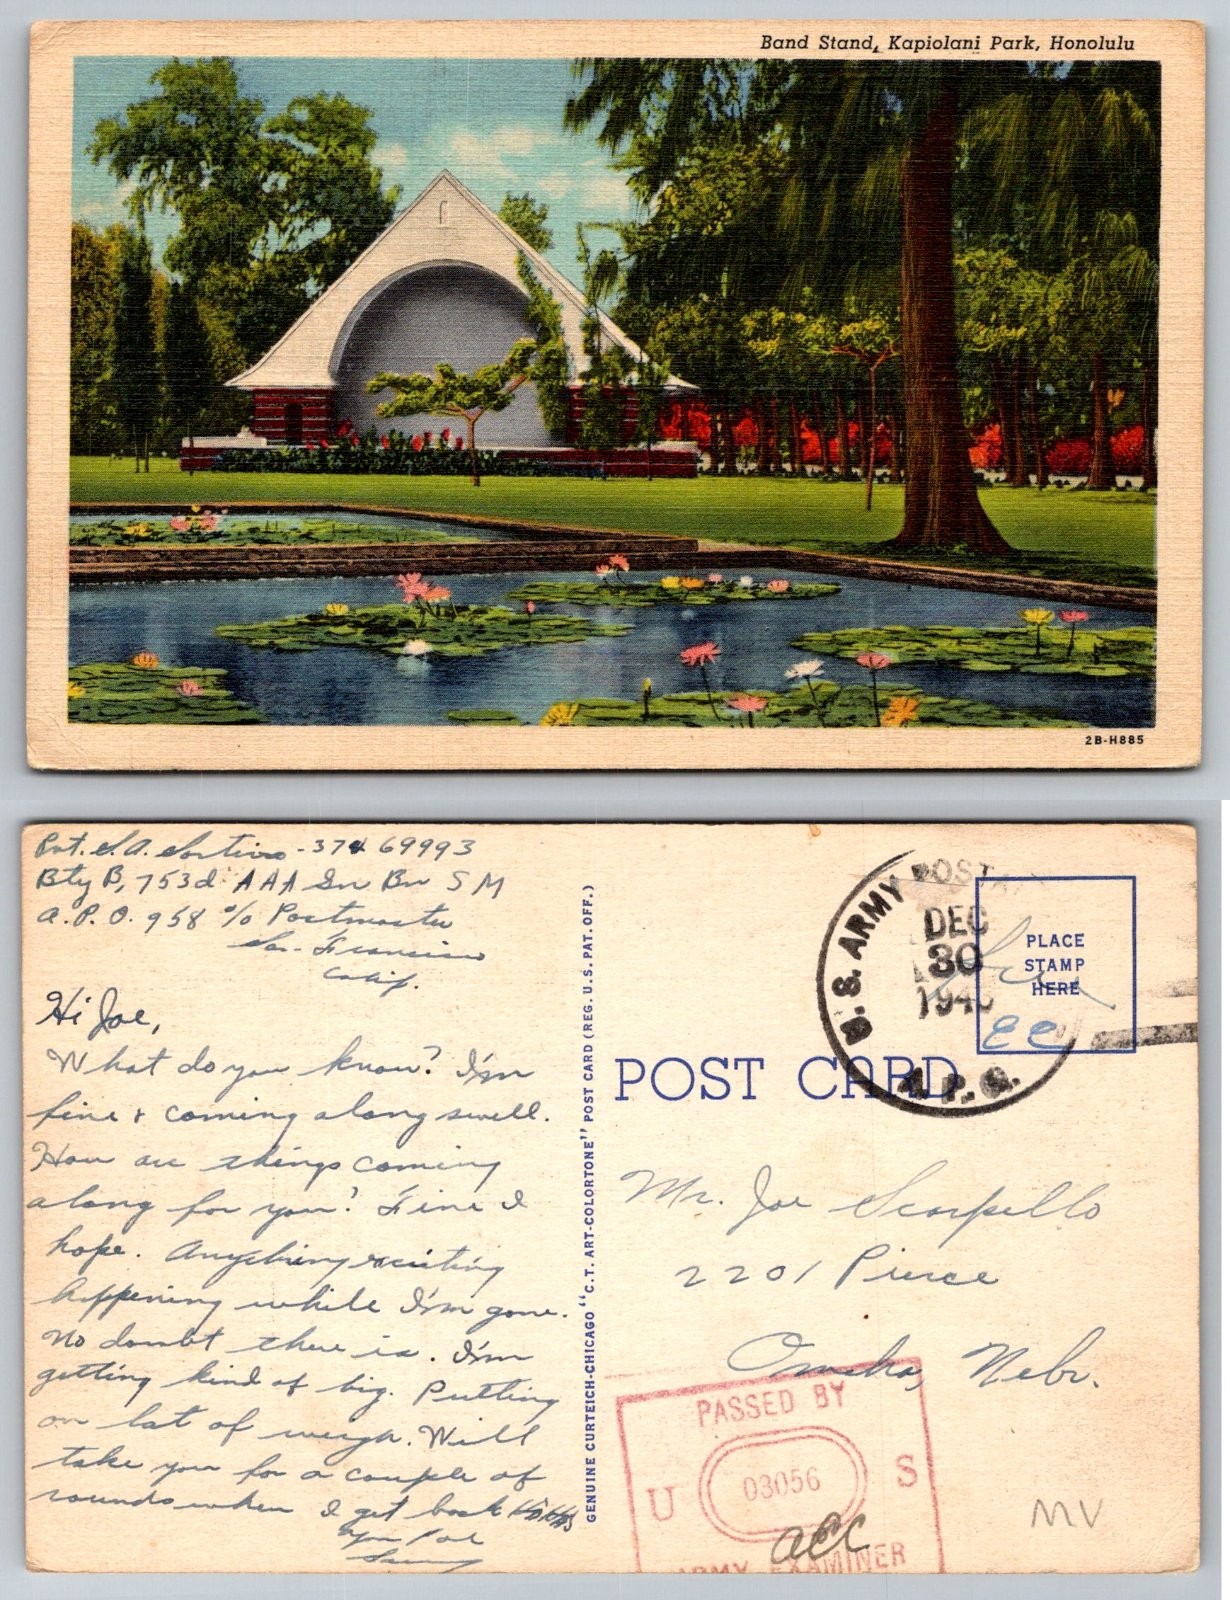 Band Stand, Kapiolani Park, Honolulu
2B-H885
Pvt. S. A. - 37469993
Bty B, 753d AAA Gn Bn S M
A. P. O. 958 % Postmaster
San Francisco
Calif.
Hi Joe,
What do you know? I'm
fine & coming along swell.
How are things coming
along for you? Fine I
hope. Anything exciting
happening while I'm gone.
No doubt there is. I'm
getting kind of big. Putting
on lot of weigh. Will
take you for a couple of
rounds when I get back
Your Pal
GENUINE CURTEICH-CHICAGO "C. T. ART-COLORTONE" POST CARD (REG. U. S. PAT. OFF.)
U. S. ARMY POSTAL
DEC
30
194
A. P. O.
PLACE
STAMP
HERE
POST CARD
Mr. Joe Scarpello
2201 Pierce
Omaha, Nebr.
PASSED BY
U 03056 S
ARMY EXAMINER
MV